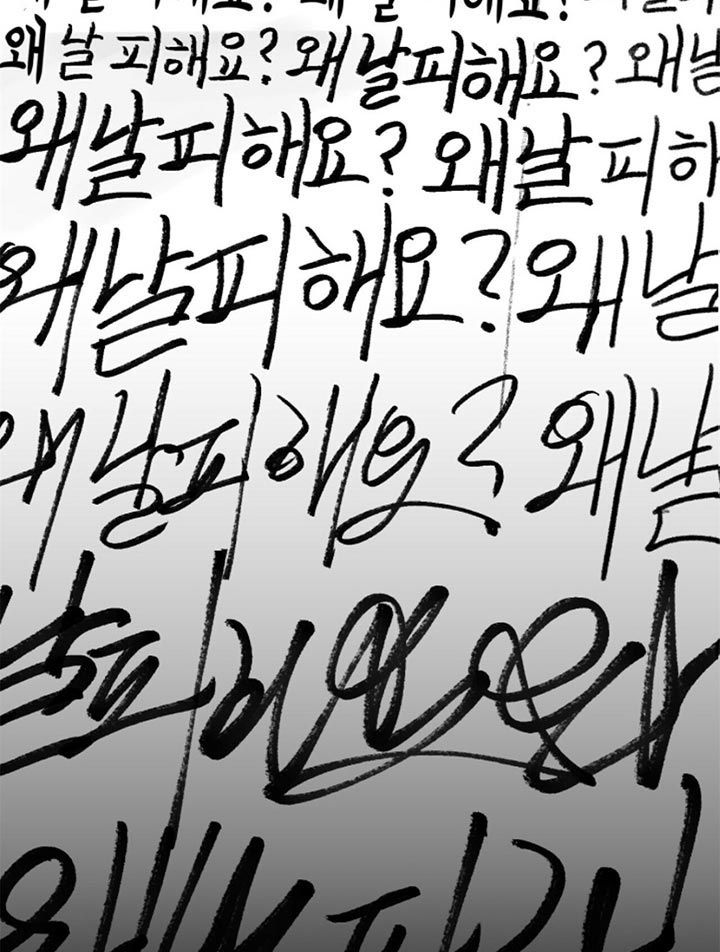 왜 날 피해요? 왜 날 피해요?
왜 날 피해요? 왜 날 피해요? 왜 날
왜 날 피해요? 왜 날 피해
왜 날 피해요? 왜 날
왜 날 피해요? 왜 날
날 피해요
왜 날 피